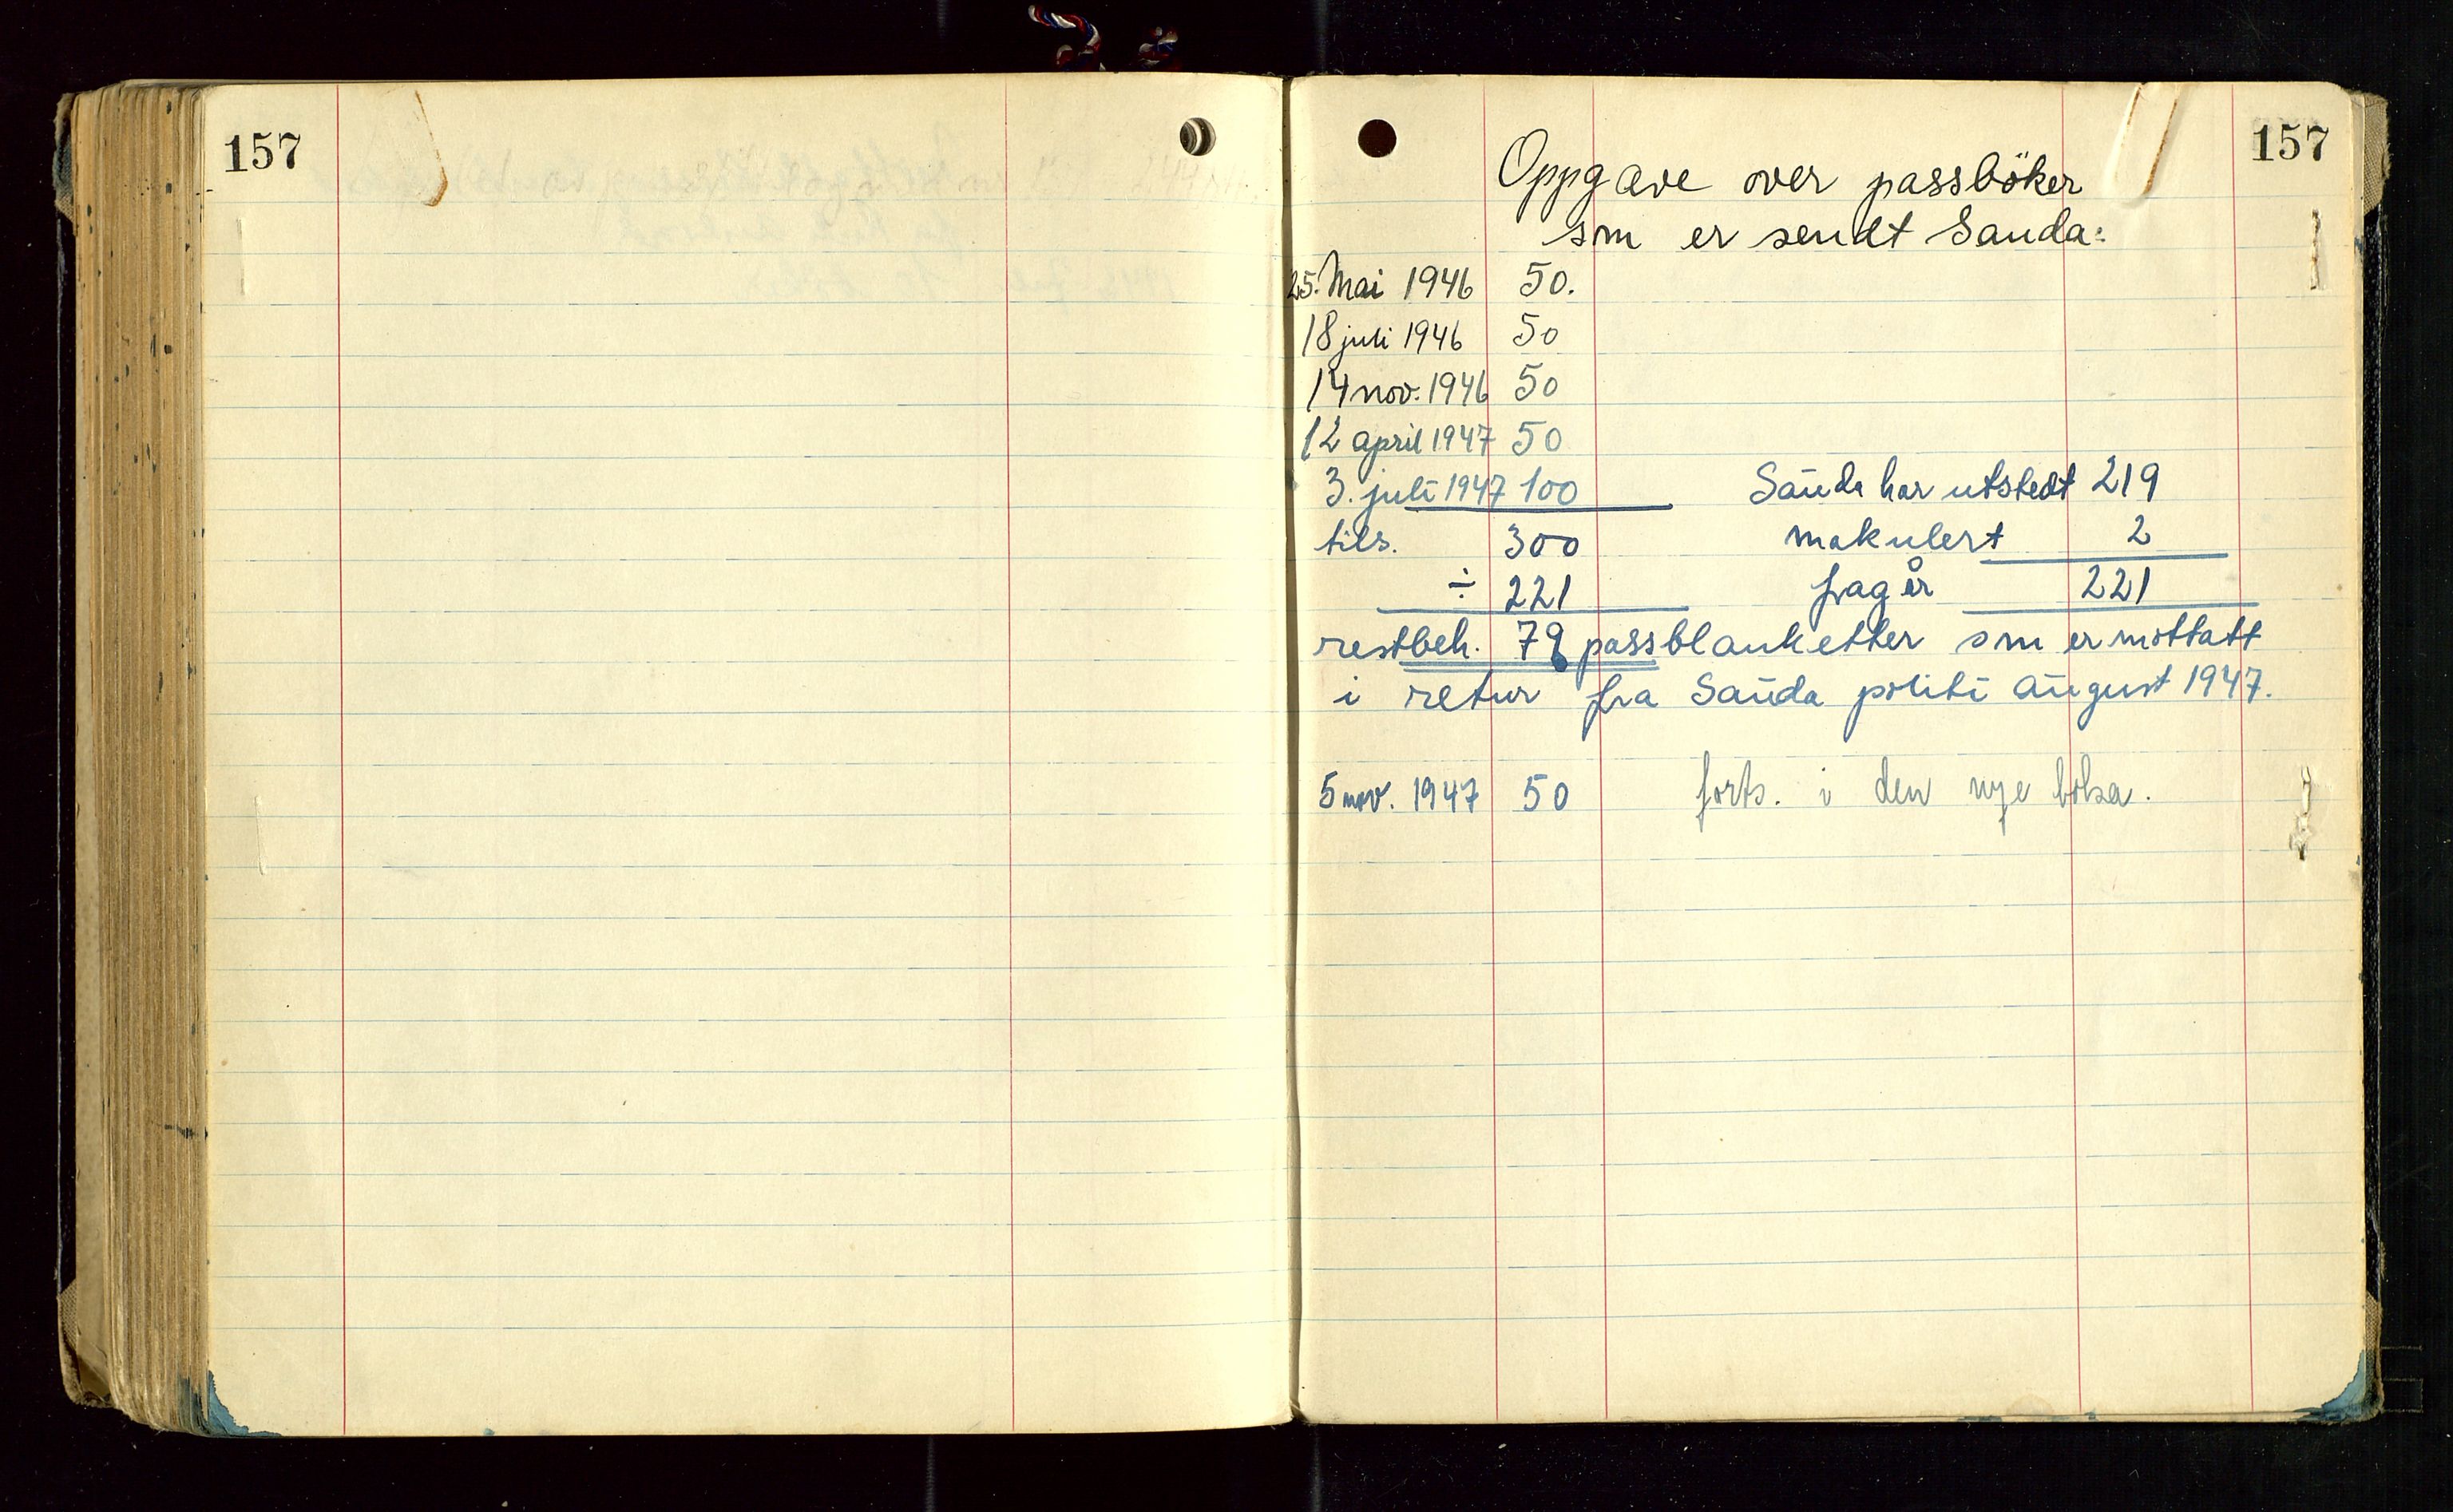 157
157
Oppgave over passböker
som er sendt Sauda:
25. Mai 1946 50.
18 juli 1946 50
14 nov. 1946 50
12 april 1947 50
3. juli 1947 100 Sauda har utstedt 219
tils. 300 makulert 2
÷ 221 fragår 221
restbeh. 79 passblanketter som er mottatt
i retur fra Sauda politi august 1947.
5 nov. 1947 50 forts. i den nye boka.